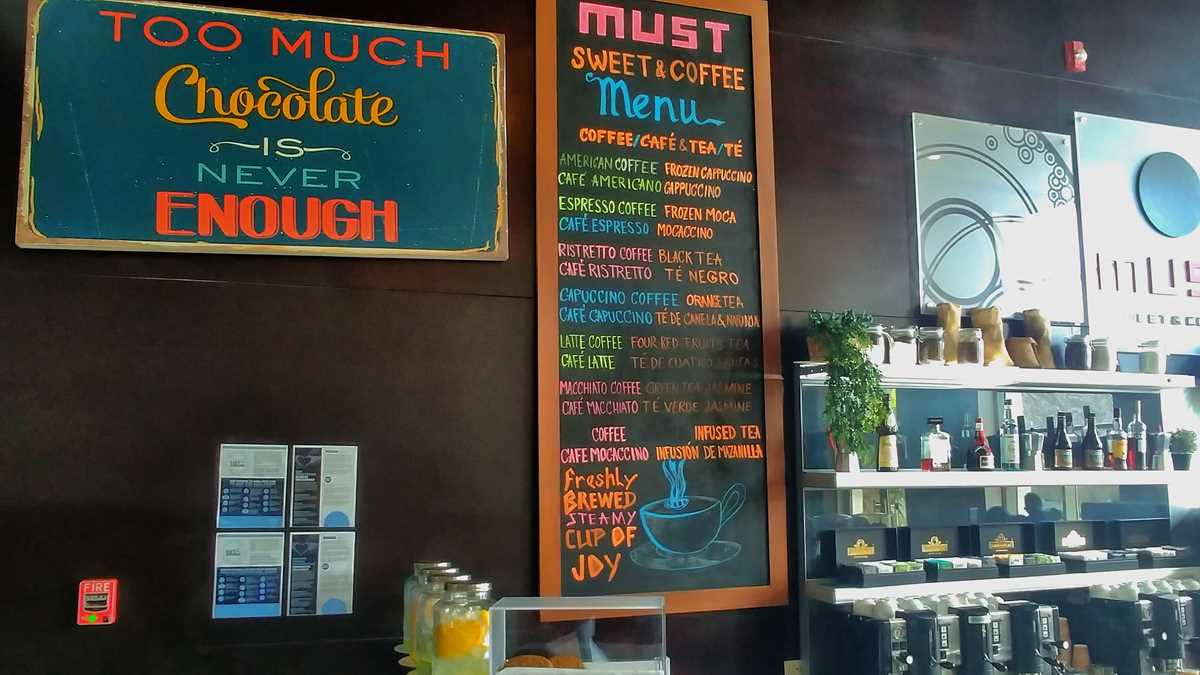 TOO MUCH
Chocolate
IS
NEVER
ENOUGH
MUST
SWEET & COFFEE
Menu
COFFEE/CAFÉ & TEA/TÉ
AMERICAN COFFEE FROZEN CAPPUCCINO
CAFÉ AMERICANO CAPPUCCINO
ESPRESSO COFFEE FROZEN MOCA
CAFÉ ESPRESSO MOCACCINO
RISTRETTO COFFEE BLACK TEA
CAFÉ RISTRETTO TÉ NEGRO
CAPUCCINO COFFEE ORANGE TEA
CAFÉ CAPUCCINO TÉ DE CANELA &
LATTE COFFEE FOUR RED FRUITS TEA
CAFÉ LATTE TE DE CUATRO FRUTAS
MACCHIATO COFFEE GREEN TEA JASMINE
CAFÉ MACCHIATO TÉ VERDE JASMINE
COFFEE INFUSED TEA
CAFE MOCACCINO INFUSIÓN DE MIZANILLA
Freshly
BREWED
STEAMY
CUP OF
JOY
FIRE
mus